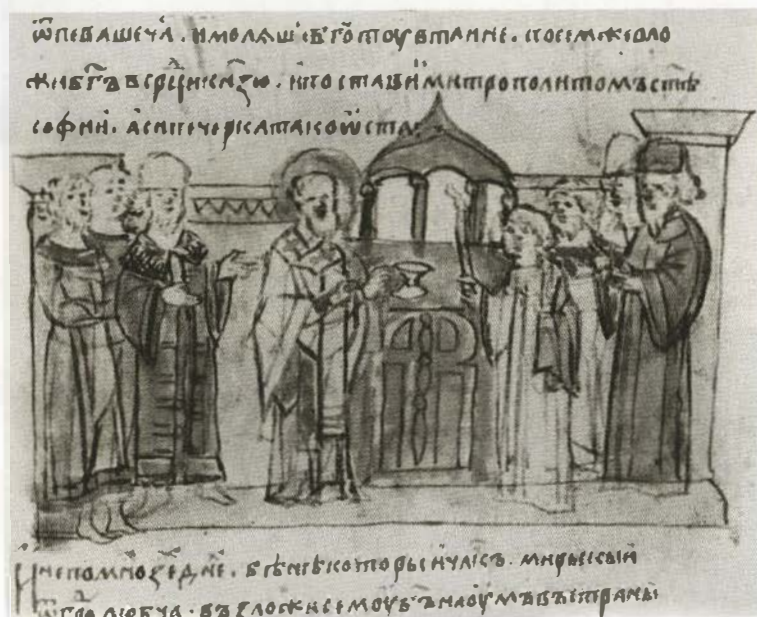 ѿпеваше ча҃. и молѧш бг҃ѹ тоу втаине. посем же вло
жи бг҃ъ в ср҃ци кн҃зю. и постави митрополитомъ ст҃ѣ
софии. а си печерка тако ѿста
не по мноѕе дн҃е. бѣ нѣкоторыи члкъ. мирьскыи
любча. възложи семоу б҃ъ на оумъ въ страны